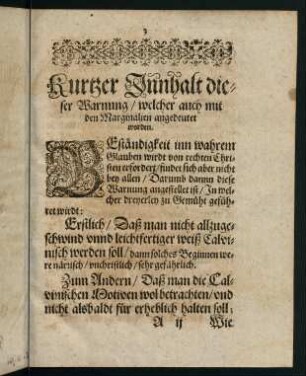 3
Kurtzer Jnnhalt die-
ser Warnung / welcher auch mit
den Marginalien angedeutet
worden.
BEständigkeit inn wahrem
Glauben wirdt von rechten Chri-
sten erfordert / findet sich aber nicht
bey allen / Darumb dannn diese
Warnung angestellet ist / Jn wel-
cher dreyerley zu Gemüht gefüh-
ret wirdt:
Erstlich / Daß man nicht allzuge-
schwind vnnd leichtfertiger weiß Calvi-
nisch werden soll / dann solches Beginnen we-
re närrisch / vnchristlich / sehr gefährlich.
Zum Andern / Daß man die Cal-
vinischen Motiven wol betrachten / vnd
nicht alsbaldt für erheblich halten soll:
A ij Wie